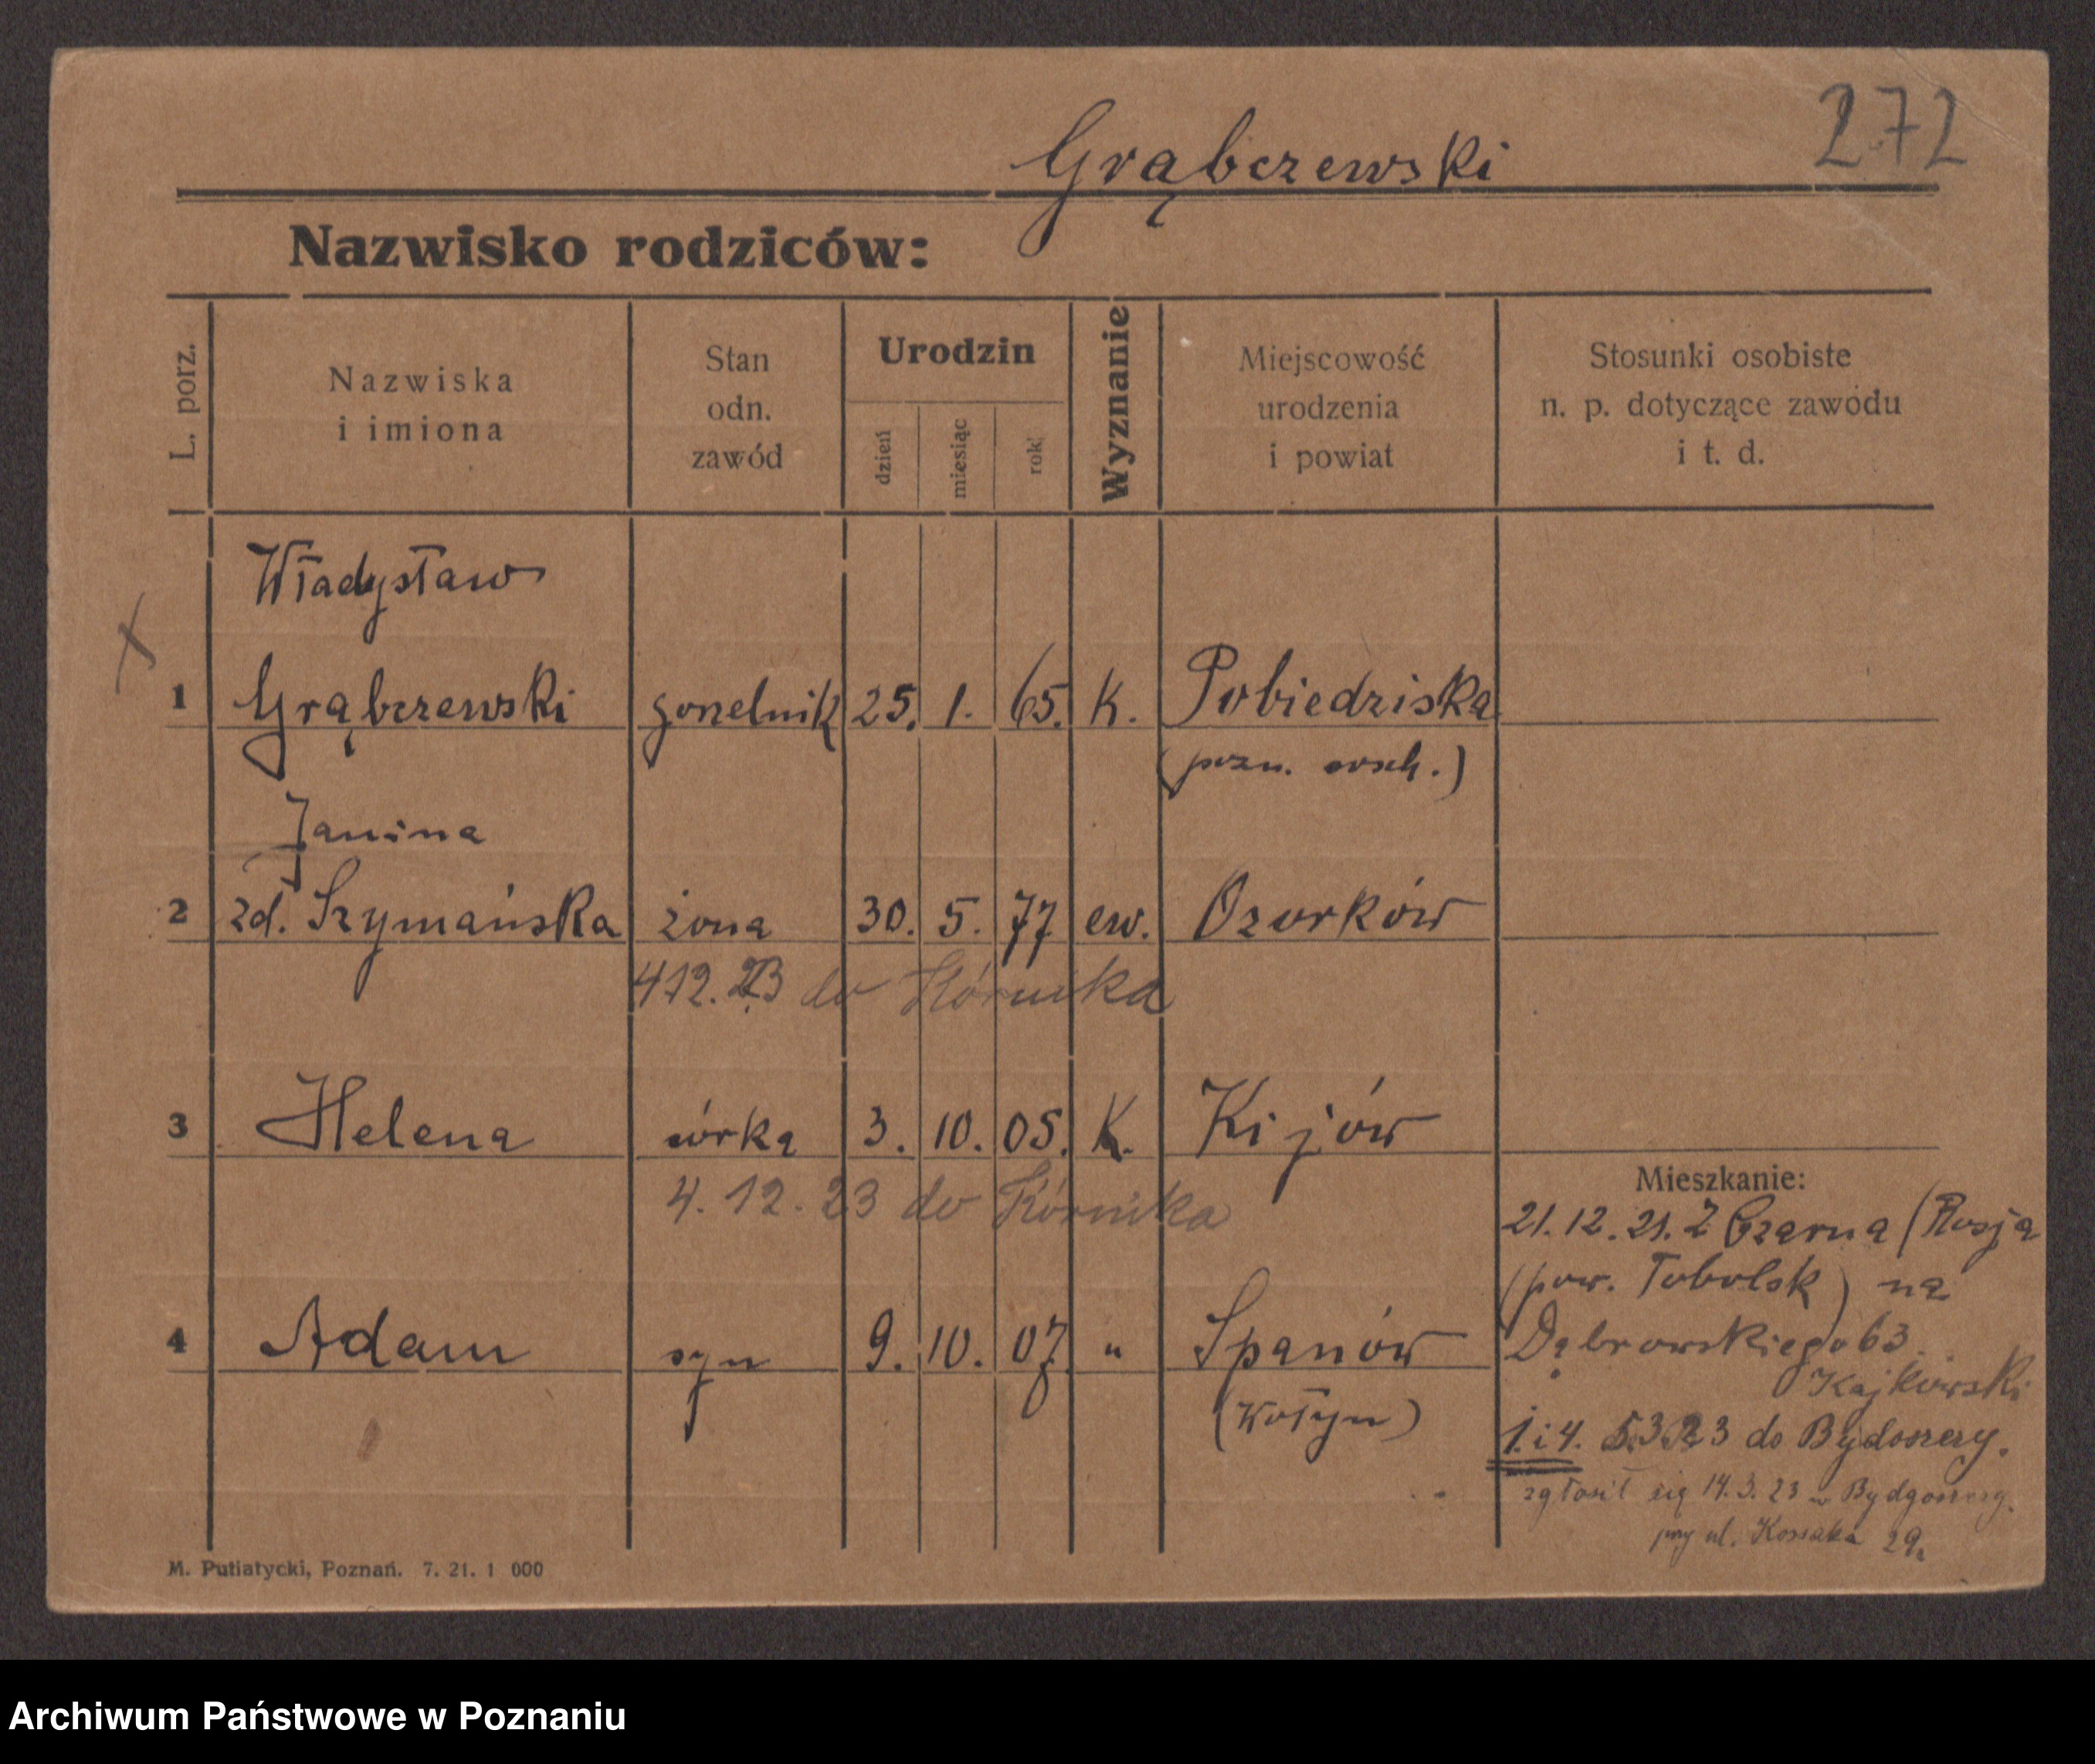 272
Grąbczewski
Nazwisko rodziców:
L. porz.
Nazwiska
i imiona
Stan
odn.
zawód
Urodzin
dzień
miesiąc
rok
Wyznanie
Miejscowość
urodzenia
i powiat
Stosunki osobiste
n. p. dotyczące zawodu
i t. d.
Władysław
1 Grąbczewski gorzelnik 25. 1. 65. K. Pobiedziska
(pozn. wsch.)
Janina
2 zd. Szymańska żona 30. 5. 77 ew. Ozorków
4 12. 23 do Kórnika
3 Helena córka 3. 10. 05. K. Kijów
4. 12. 23 do Kórnika
Mieszkanie:
21. 12. 21. Z Czarna (Rosja
(pow. Tobolsk) na
4 Adam syn 9. 10. 07 " Spanów
(Wołyn)
Dąbrowskiego 63.
Kajkowski
1. i 4. 5.3 23 do Bydgoszczy.
zgłosił się 14. 3. 23 w Bydgoszczy.
przy ul. Kossaka 29.
M. Putiatycki, Poznań. 7. 21. 1 000
Archiwum Państwowe w Poznaniu